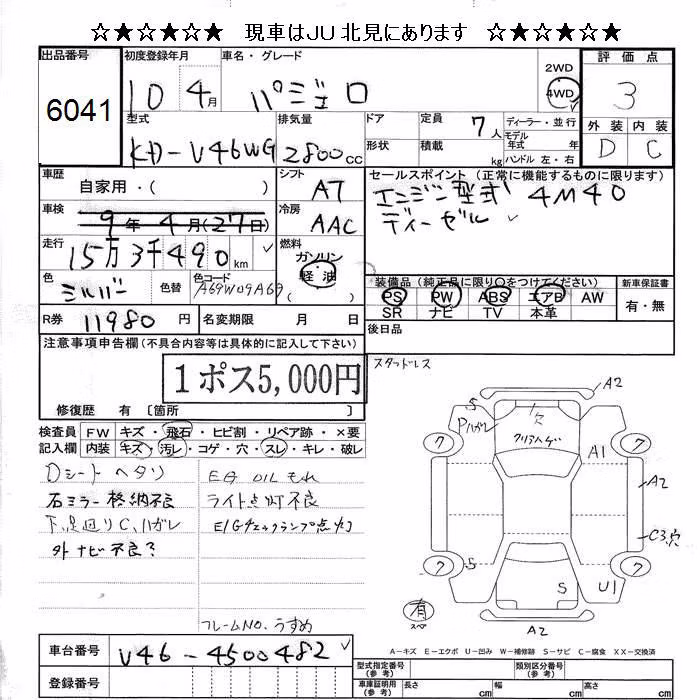 ☆★☆★☆★ 現車はJU北見にあります ☆★☆★☆★
出品番号 初度登録年月 車名・グレード 2WD 4WD 評価点
6041 10 4月 パジェロ 3
型式 排気量 ドア 定員 7人 ディーラー・並行 外装 内装
モデル年式 年
KD-V46WG 2800cc 形状 積載 kg ハンドル 左・右 D C
車歴 自家用・( ) シフト AT セールスポイント (正常に機能するものに限ります)
エンジン型式 4M40
ディーゼル
車検 9年4月(27日) 冷房 AAC
走行 15万3千490km 燃料 ガソリン 軽油 ( )
色 シルバー 色替 色コード A69W09A69
装備品 (純正品に限り○をつけてください) 新車保証書
PS PW ABS エアB AW 有・無
SR ナビ TV 本革
R券 11980円 名変期限 月 日 後日品
注意事項申告欄 (不具合内容等は具体的に記入して下さい)
1ポス5,000円
修復歴 有 〔箇所 〕
スタッドレス
検査員 FW キズ・飛石・ヒビ割・リペア跡・×要
記入欄 内装 キズ・汚レ・コゲ・穴・スレ・キレ・破レ
Dシート ヘタリ
右ミラー格納不良
下、足廻りC、ハガレ
外ナビ不良?
EG OILもれ
ライト点灯不良
E/Gチェックランプ点灯
フレームNO.うすめ
A2
S
Pハガレ
欠
クリアハゲ
7
7
A1
A2
C3.穴
7
7
S
S
U1
有
スペア
A2
A-キズ E-エクボ U-凹み W-補修跡 S-サビ C-腐食 XX-交換済
車台番号 V46-4500482
登録番号
型式指定番号(参考) 類別区分番号(参考)
車庫証明用(参考) 長さ cm 幅 cm 高さ cm